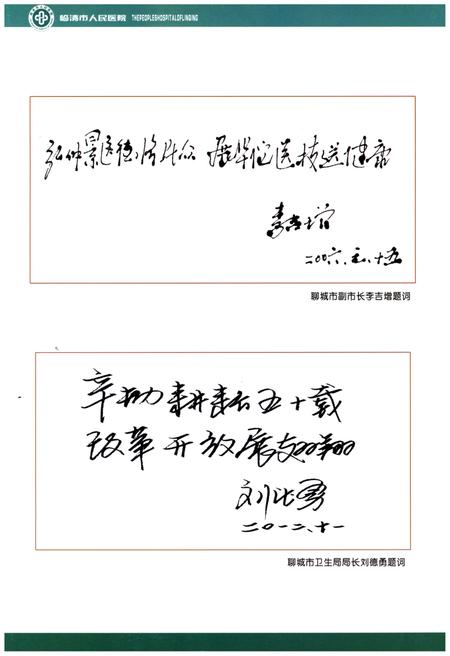 临清市人民医院 THEPEOPLESHOSPITALOFLINQING
弘仲景医德济众 展华佗医技送健康
李吉增
二00六.元.十五
聊城市副市长李吉增题词
辛勤耕耘五十载
改革开放展翅翔
刘德勇
二0一二.十一
聊城市卫生局局长刘德勇题词